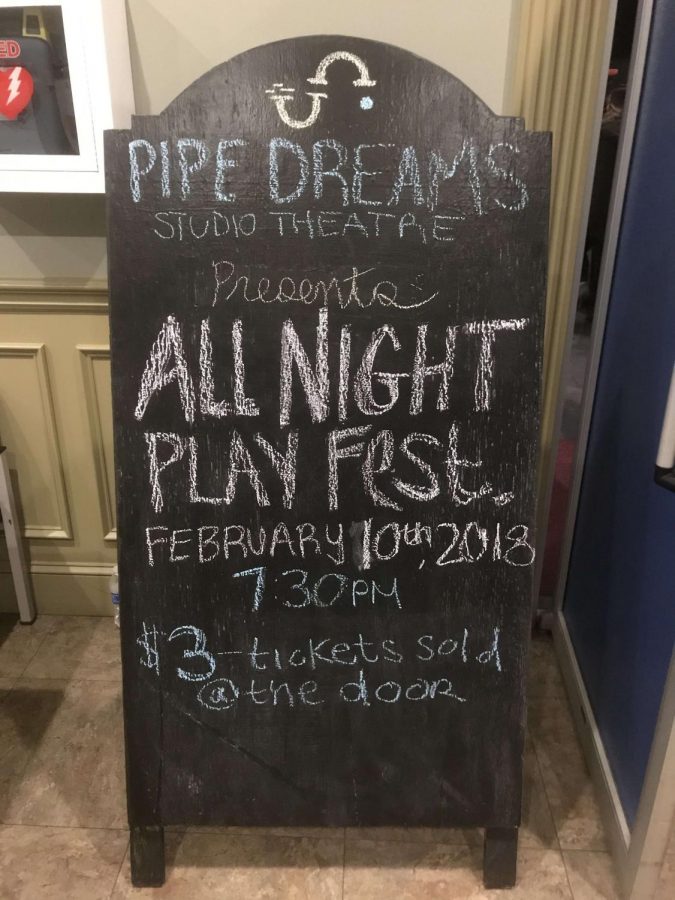 ED
PIPE DREAMS
STUDIO THEATRE
Presents:
ALL NIGHT
PLAY Fest.
FEBRUARY 10th, 2018
7:30PM
$3-tickets sold
@ the door